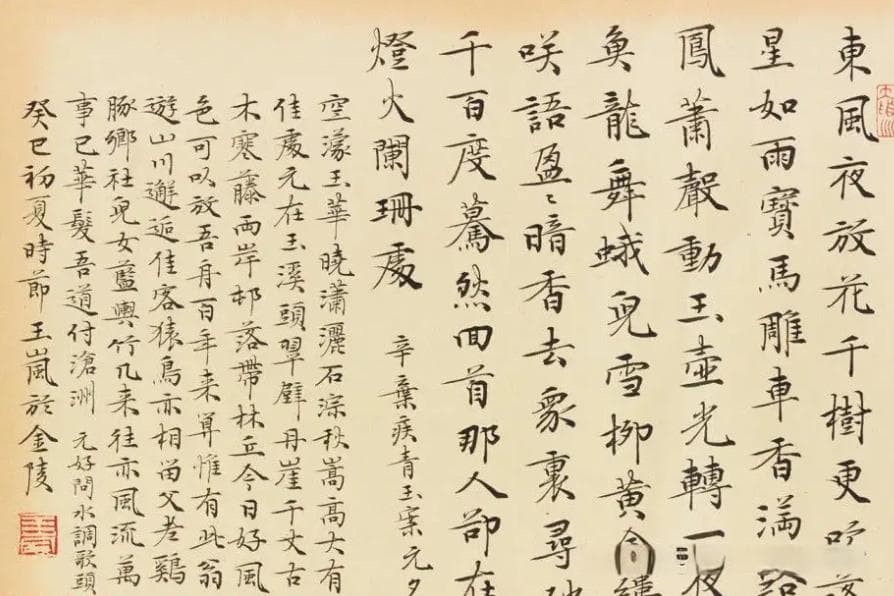 東風夜放花千樹更吹落
星如雨寶馬雕車香滿路
鳳蕭聲動玉壺光轉一夜
魚龍舞蛾兒雪柳黃金縷
咲語盈〻暗香去眾裏尋
千百度驀然回首那人卻在
燈火闌珊處
辛棄疾青玉案元夕
空濛玉華曉瀟灑石淙秋嵩高大有
佳處元在玉溪頭翠壁丹崖千丈古
木寒藤兩岸邨落帶林丘今日好風
色可以放吾舟百年来算惟有此翁
遊山川邂逅佳客猿鳥亦相留父老鷄
豚鄉社兒女藍輿竹几来往亦風流萬
事已華髮吾道付滄洲 元好問水調歌頭
癸巳初夏時節王嵐於金陵